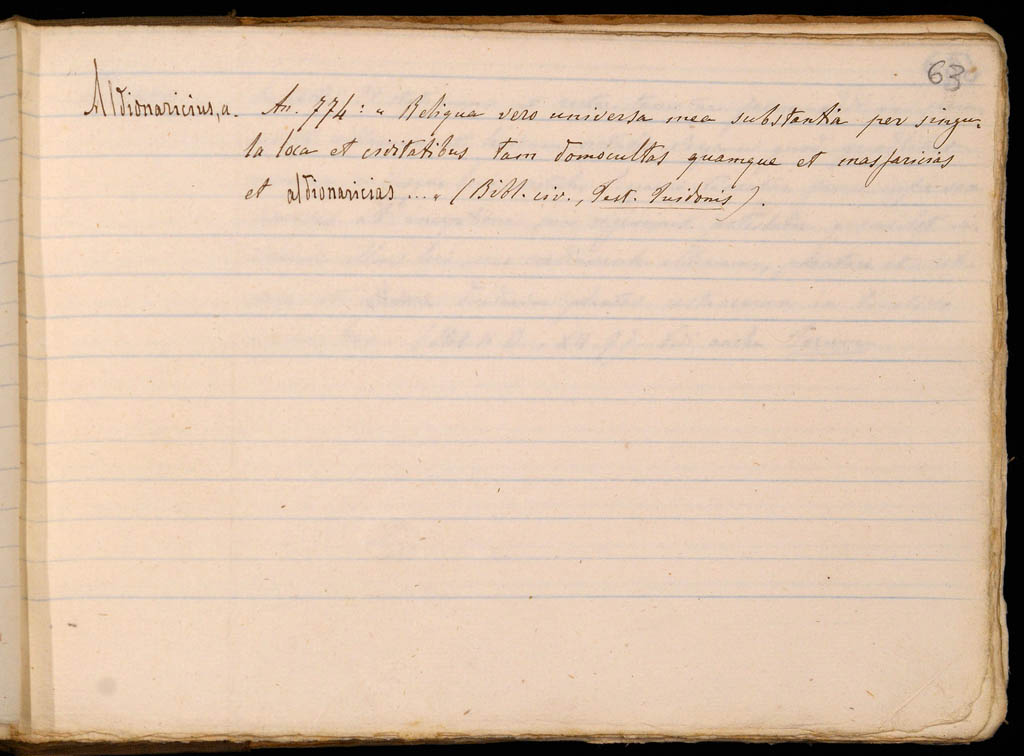 63
Aldionaricius, a. An. 774: „ Reliqua vero universa mea substantia per singu-
la loca et civitatibus tam domocultas quamque et massaricias
et aldionaricias ... „ (Bibl. civ., Test. Tuidonis).